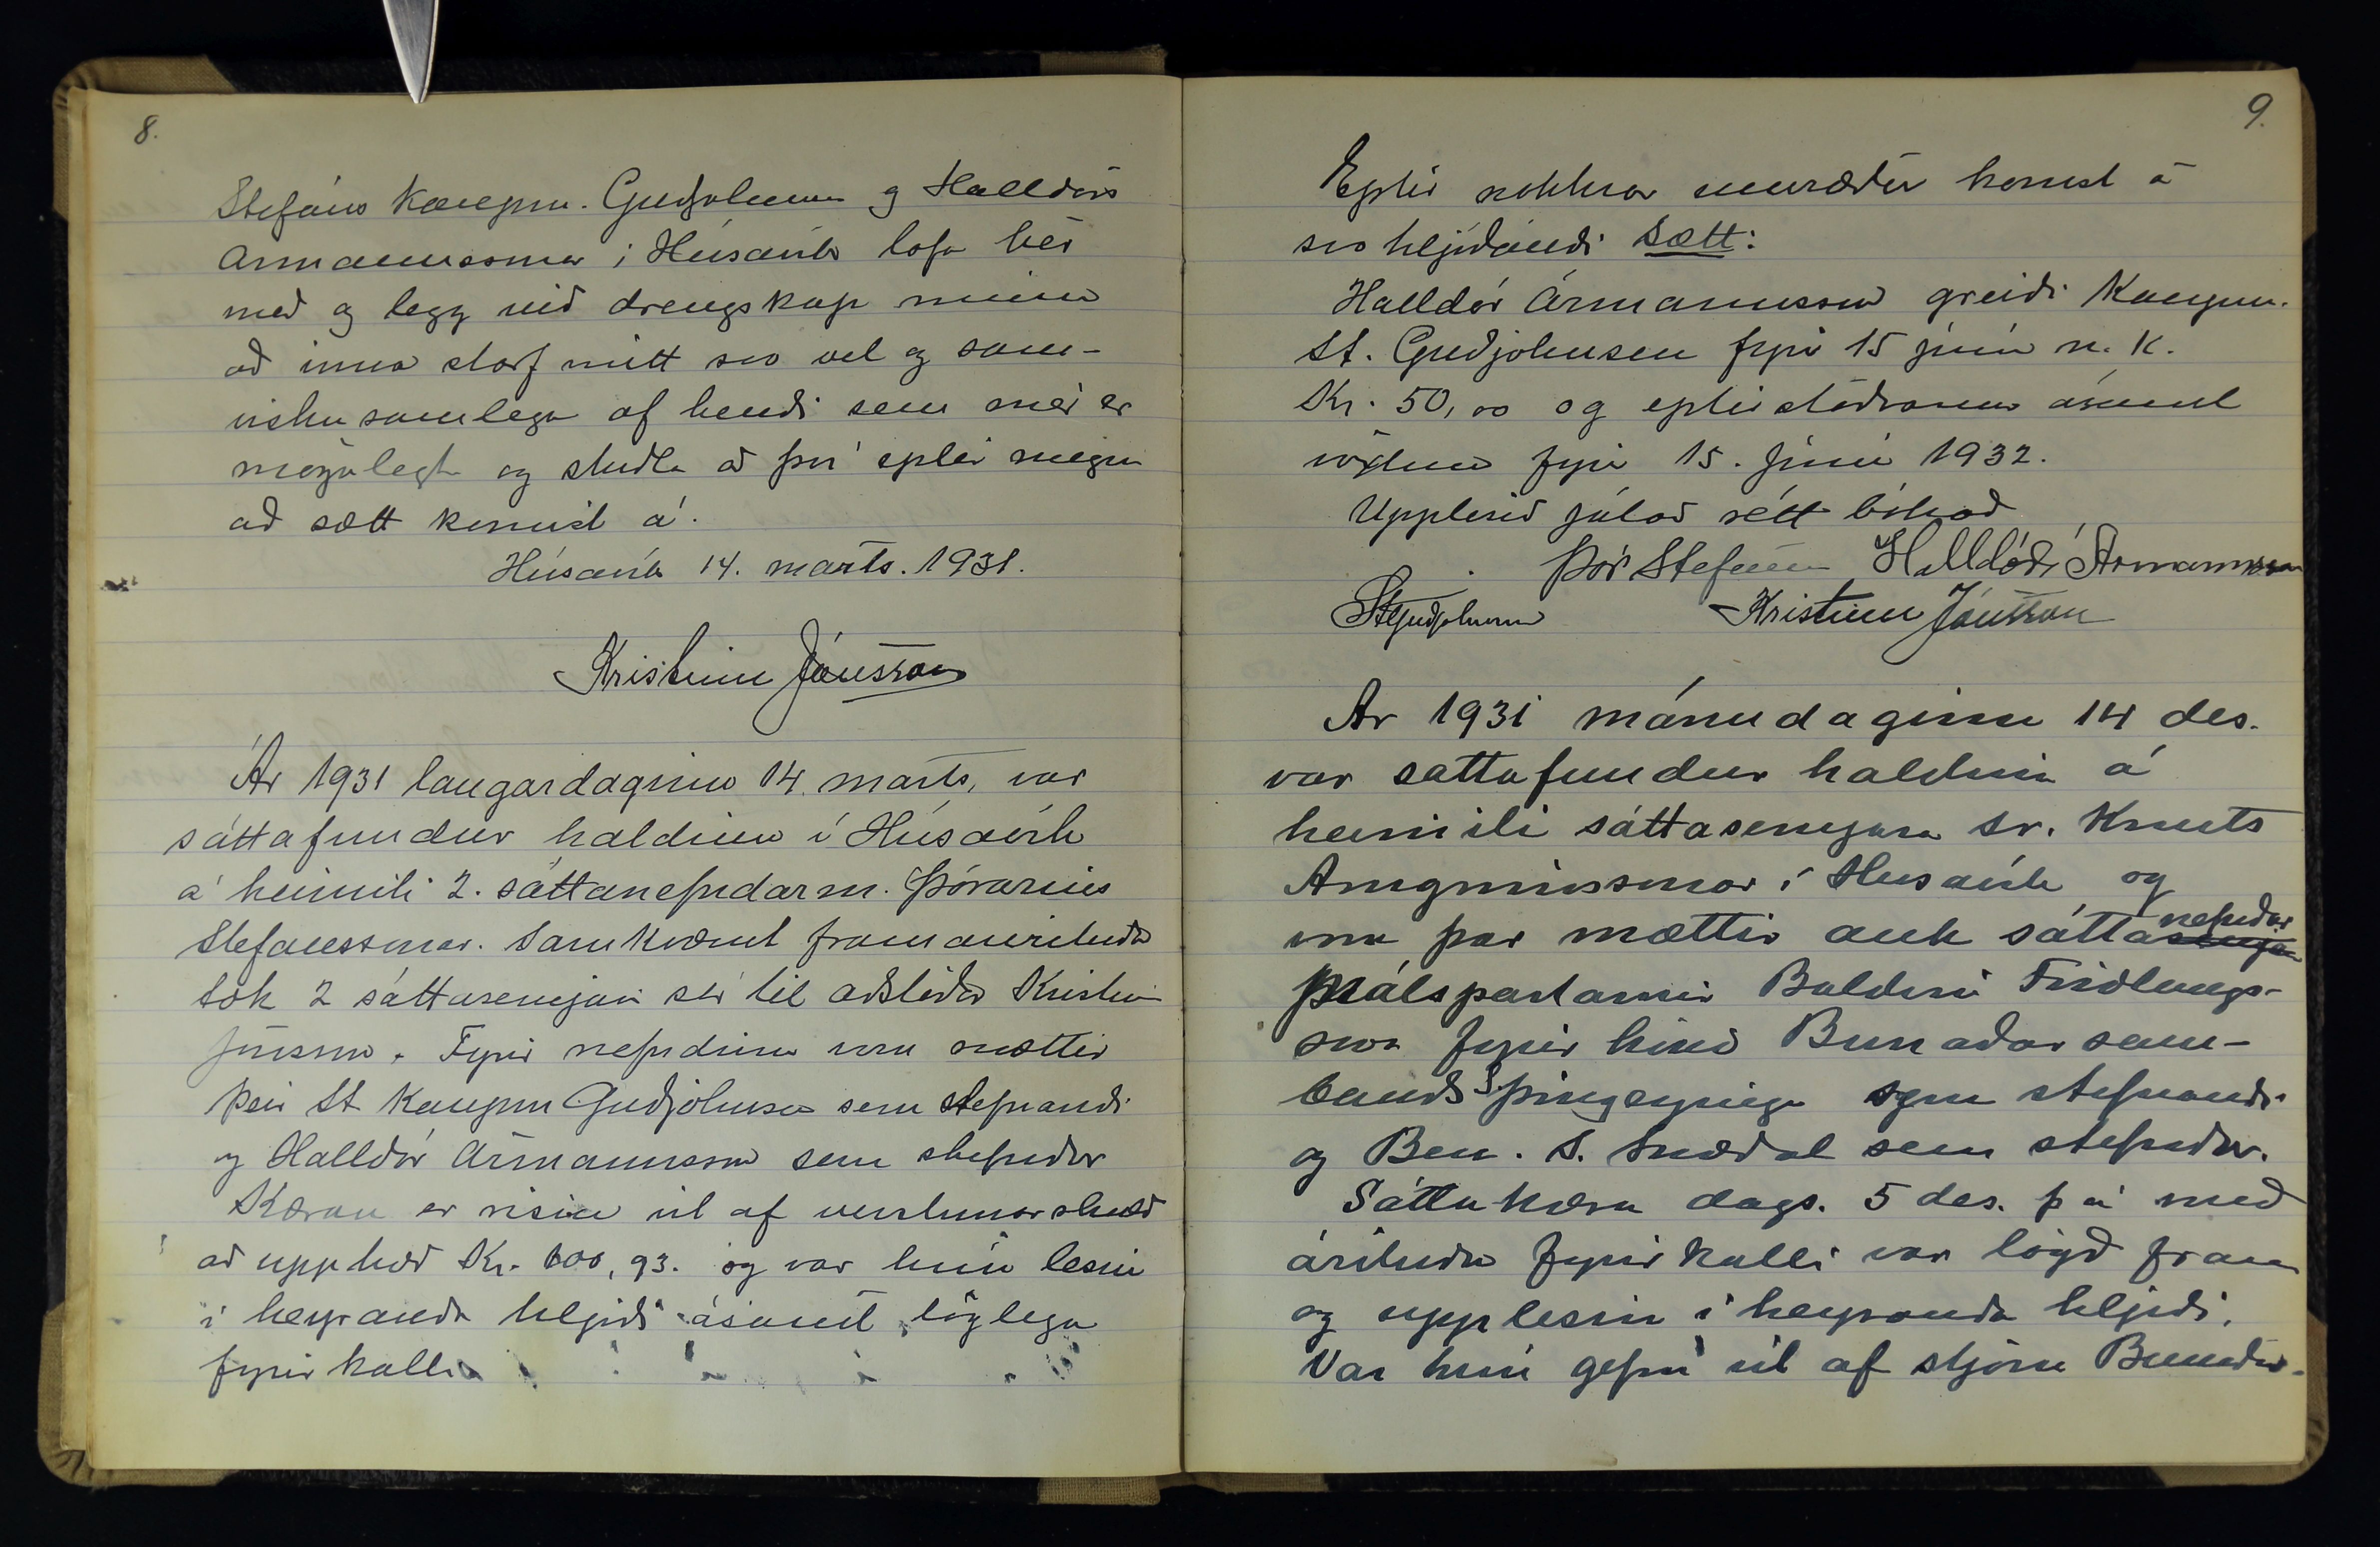 8.
Stefáns Kaupm. Guðjohnsen og Halldórs
Ármannssonar í Húsavík lofa hér
með og legg við drengskap minn
að inna starf mitt svo vel og sam-
viskusamlega af hendi sem mér er
mögulegt og stuðla að því eptir megni
að sætt komist á.
Húsavík 14. marts. 1931.
Kristinn Jónsson
Ár 1931 laugardaginn 14. marts, var
sáttafundur haldinn í Húsavík
á heimili 2. sáttanefndarm. Þórarins
Stefanssonar. Samkvæmt framanrituðu
tók 2 sáttasemjari sér til aðstoðar Kristinn
Jónsson. Fyrir nefndinni voru mættir
þeir St. Kaupm Guðjohnsen sem stefnandi
og Halldór Ármannsson sem stefndur
Kæran er risin út af verslunarskuld
að upphæð Kr. 600,93. og var hún lesin
í heyranda hljóði ásamt löglegu
fyrirkalli
9.
Eptir nokkrar umræður komst á
svo hljóðandi Sætt:
Halldór Ármannsson greiði Kaupm.
St. Guðjohnsen fyrir 15 júní n. k.
Kr. 50,00 og eptirstöðvarnar ásamt
vöxtum fyrir 15. júní 1932.
Upplesið játað rétt bókað
Þór Stefánss Halldór Ármannsson
StGuðjohnsen Kristinn Jónsson
Ár 1931 mánudaginn 14 des.
var sáttafundur haldinn á
heimili sáttasemjara sr. Knuts
Arngrimssonar í Husavík og
voru þar mættir auk sáttasemjara nefndar
Málspartarnir Baldvin Friðlaugs-
son fyrir hönd Bunaðarsam-
bands S. Þingeyinga sem stefnandi
og Ben. S. Snædal sem stefndur.
Sáttakæra dags. 5 des. þ á með
árituðu fyrirkalli var lögð fram
og upplesin í heyranda hljóði.
Var hún gefin út af stjórn Bunaðar-